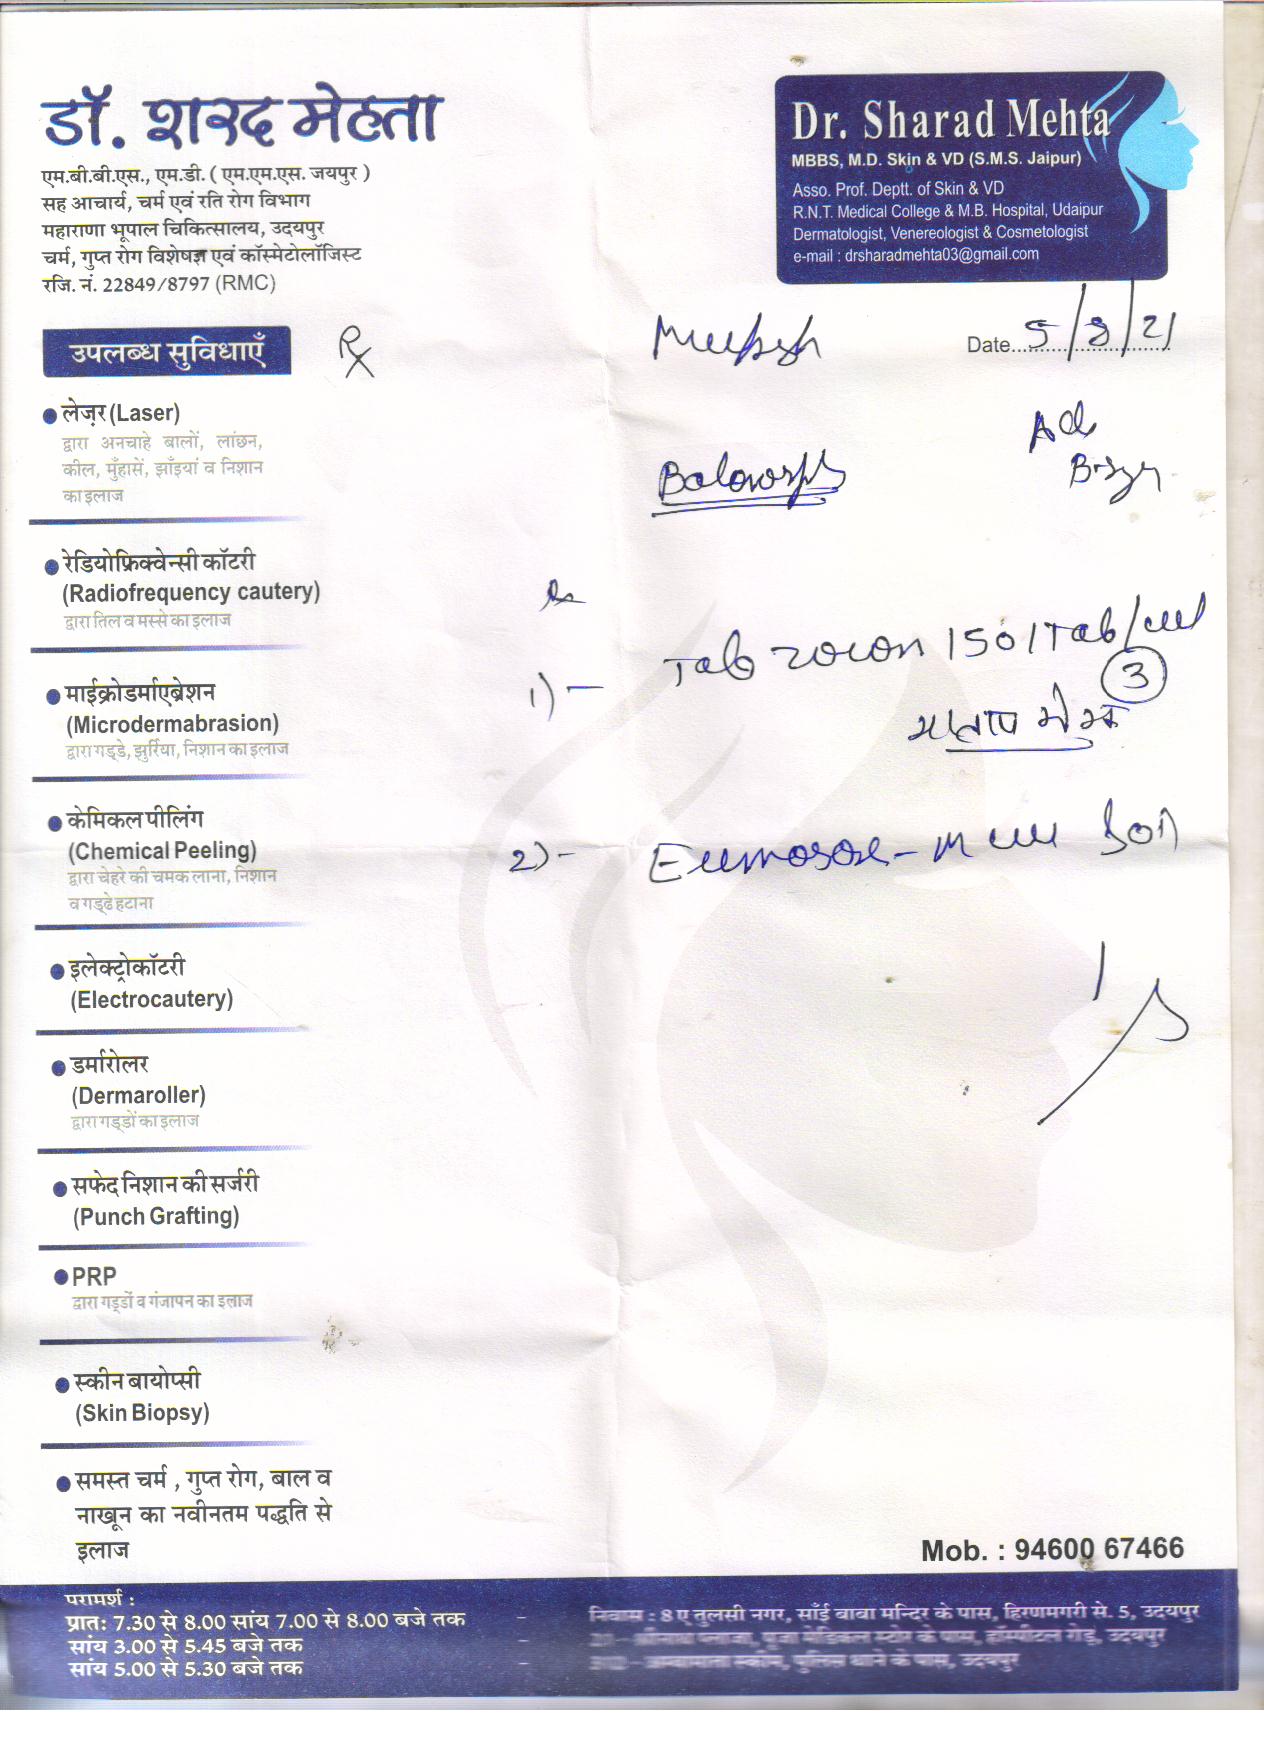 डॉ. शरद मेहता
एम.बी.बी.एस., एम.डी. ( एम.एम.एस. जयपुर )
सह आचार्य, चर्म एवं रति रोग विभाग
महाराणा भूपाल चिकित्सालय, उदयपुर
चर्म, गुप्त रोग विशेषज्ञ एवं कॉस्मेटोलॉजिस्ट
रजि. नं. 22849/8797 (RMC)
Dr. Sharad Mehta
MBBS, M.D. Skin & VD (S.M.S. Jaipur)
Asso. Prof. Deptt. of Skin & VD
R.N.T. Medical College & M.B. Hospital, Udaipur
Dermatologist, Venereologist & Cosmetologist
e-mail : drsharadmehta03@gmail.com
Date 5/8/21
उपलब्ध सुविधाएँ
लेज़र (Laser)
द्वारा अनचाहे बालों, लांछन,
कील, मुँहासें, झाँइयां व निशान
का इलाज
रेडियोफ्रिक्वेन्सी कॉटरी
(Radiofrequency cautery)
द्वारा तिल व मस्से का इलाज
माईक्रोडर्माएब्रेशन
(Microdermabrasion)
द्वारा गड्डे, झुर्रिया, निशान का इलाज
केमिकल पीलिंग
(Chemical Peeling)
द्वारा चेहरे की चमक लाना, निशान
व गड्ढे हटाना
इलेक्ट्रोकॉटरी
(Electrocautery)
डर्मारोलर
(Dermaroller)
द्वारा गड्डों का इलाज
सफेद निशान की सर्जरी
(Punch Grafting)
PRP
द्वारा गड्डों व गंजापन का इलाज
स्कीन बायोप्सी
(Skin Biopsy)
समस्त चर्म , गुप्त रोग, बाल व
नाखून का नवीनतम पद्धति से
इलाज
1) - Tab zocon 150 1Tab/
3
2) -
Mob. : 94600 67466
परामर्श :
प्रातः 7.30 से 8.00 सांय 7.00 से 8.00 बजे तक
सांय 3.00 से 5.45 बजे तक
सांय 5.00 से 5.30 बजे तक
निवास : 8 ए तुलसी नगर, साँई बाबा मन्दिर के पास, हिरणमगरी से. 5, उदयपुर
पूजा मेडिकल स्टोर के पास, हॉस्पीटल रोड़, उदयपुर
पुलिस थाने के पास, उदयपुर